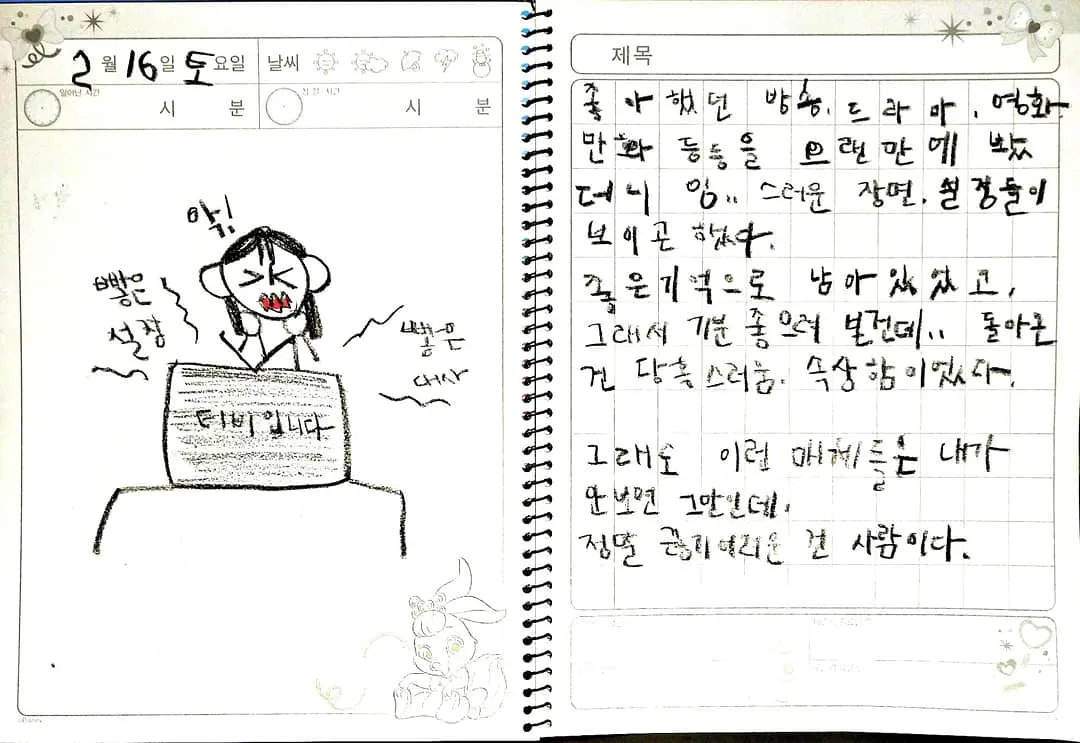 2월 16일 토요일 날씨
일어난 시간 시 분 시 분
악!
빻은
설정
빻은
대사
티비입니다
제목
좋아했던 방송, 드라마, 영화
만화 등등을 오랜만에 봤
더니 잉.. 스러운 장면, 설정들이
보이곤 했다.
좋은 기억으로 남아 있었고,
그래서 기분 좋으려 본건데.. 돌아온
건 당혹스러움, 속상함이었다.
그래도 이런 매체들은 내가
안보면 그만인데,
정말 끊기 어려운 건 사람이다.